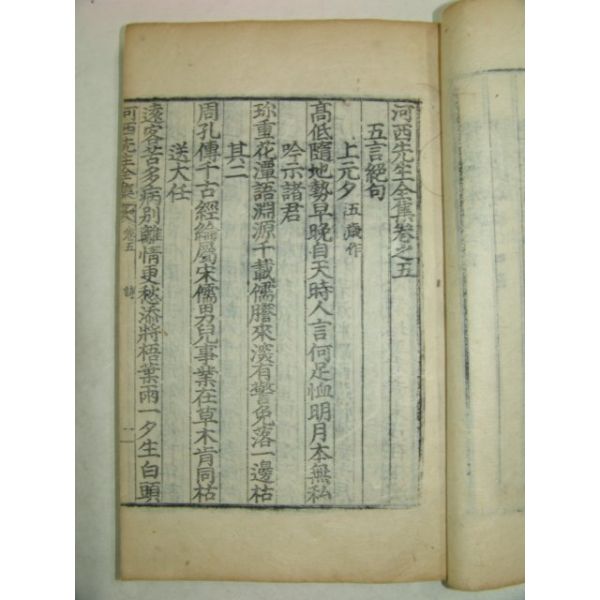 河西先生全集卷之五
五言絕句
上元夕 五歲作
高低隨地勢早晚自天時人言何足恤明月本無私
吟示諸君
珎重花潭語淵源千載儒來深有警免落一邊枯
其二
周孔傳千古經綸屬宋儒男兒事業在草木肯同枯
送大任
遠客苦多病別離情更愁添將梧葉雨一夕生白頭
河西先生全集 卷五 詩 一